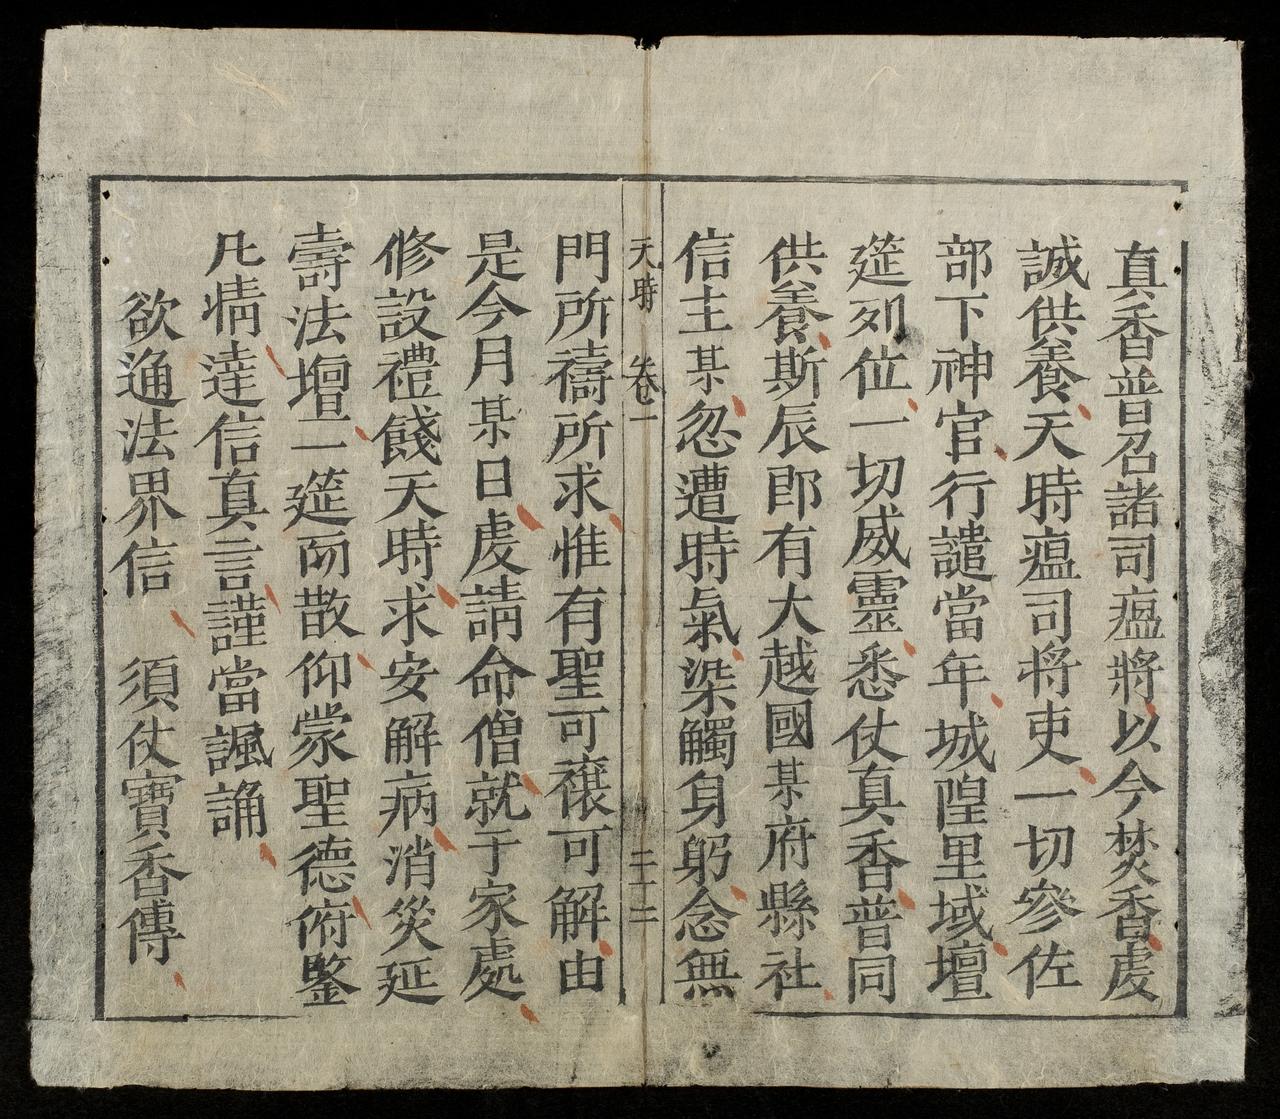 真香普召諸司瘟將以今焚香虔
誠供養天時瘟司将吏一切參佐
部下神官行譴當年城隍里域壇
筵列位一切威靈悉仗真香普同
供養斯辰即有大越國某府縣社
信主某忽遭時氣染觸身躬念無
天時 卷一 二十二
門所禱所求惟有聖可禳可解由
是今月某日虔請命僧就于家處
修設禮餞天時求安解病消災延
壽法壇一筵而散仰蒙聖德俯鑒
凡情達信真言謹當諷誦
欲通法界信 須仗寶香傳